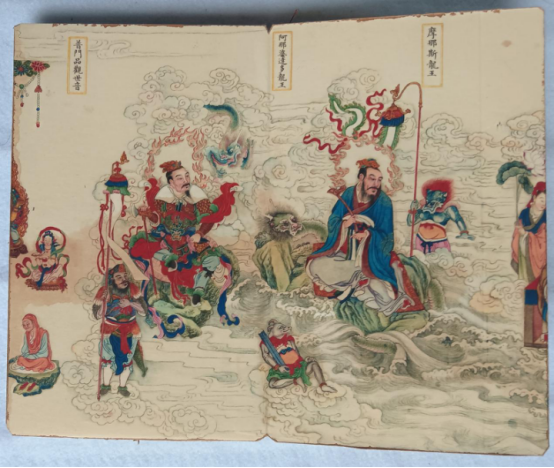 摩那斯龍王
阿那婆達多龍王
普門品觀世音